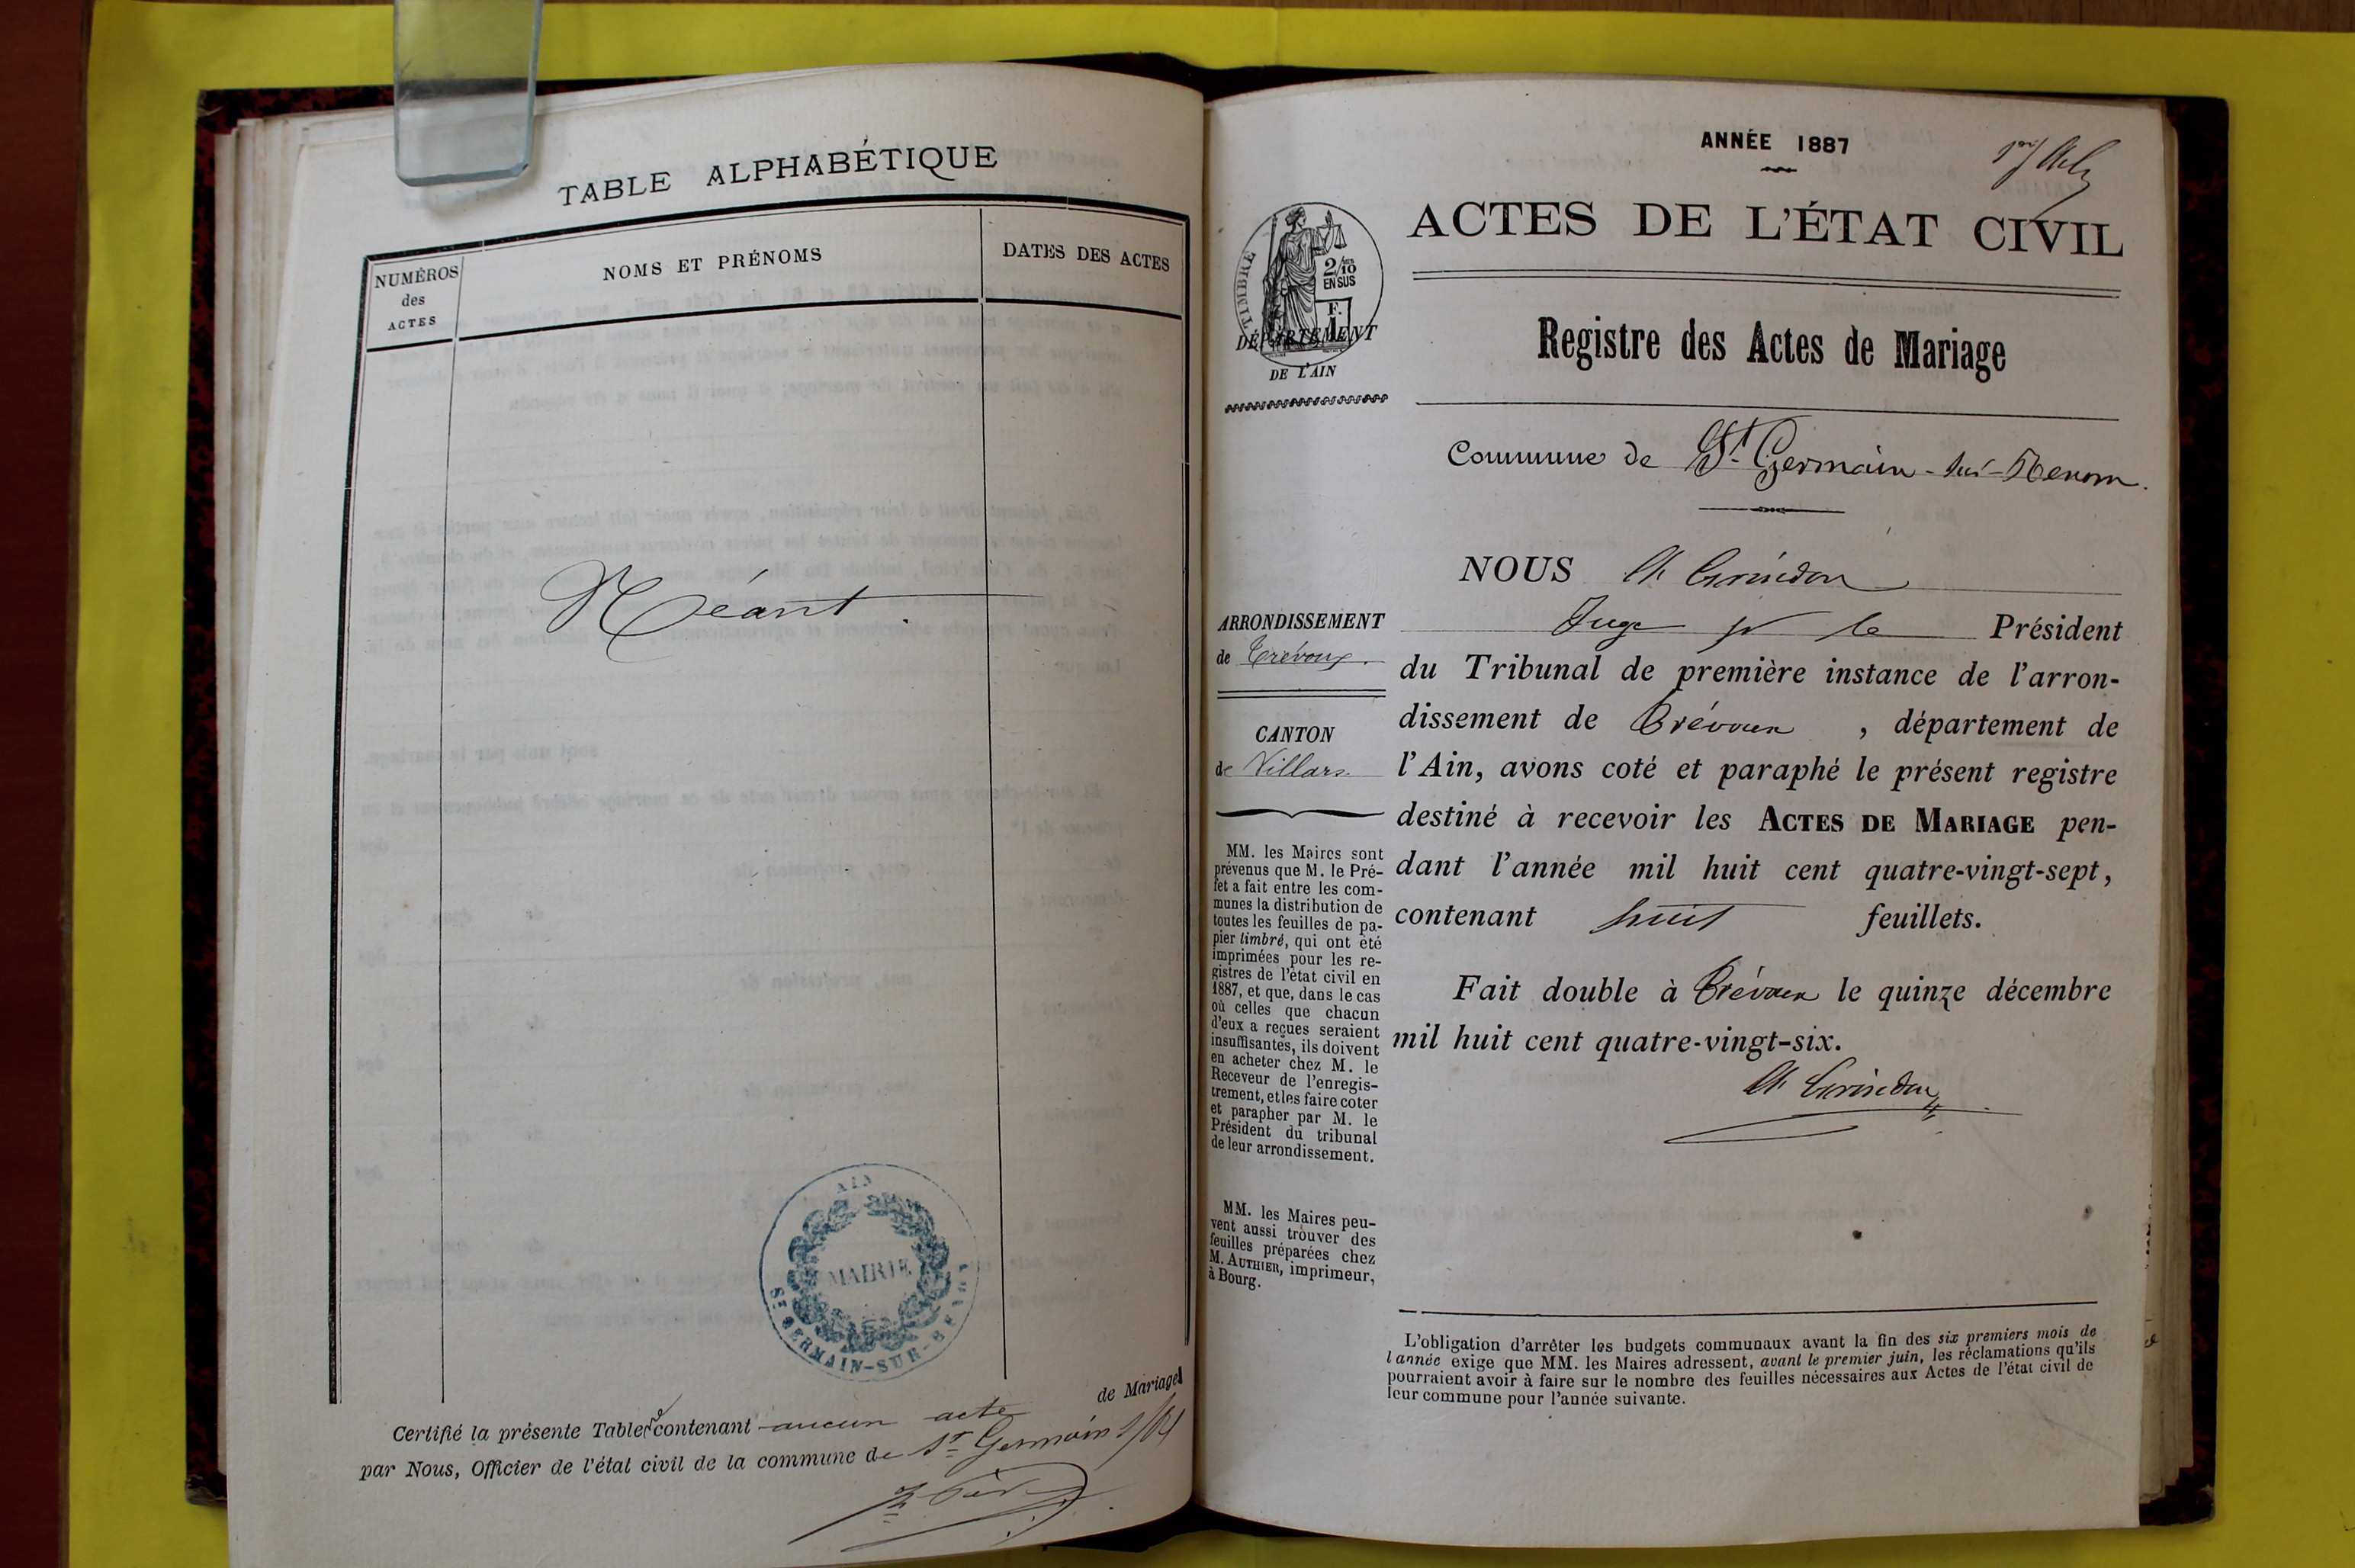 TABLE ALPHABÉTIQUE
NUMÉROS
des
ACTES
NOMS ET PRÉNOMS
DATES DES ACTES
Néant.
AIN
MAIRIE
ST GERMAIN-SUR-
de Mariage
Certifié la présente Table contenant aucun acte
par Nous, Officier de l'état civil de la commune de St Germain s/
ANNÉE 1887
ACTES DE L'ÉTAT CIVIL
TIMBRE
2/10
EN SUS
F.
1
DÉPARTEMENT
DE L'AIN
Registre des Actes de Mariage
Commune de St Germain-sur-Renom.
NOUS Ch Grindon
Juge pr le Président
du Tribunal de première instance de l'arron-
dissement de Trévoux, département de
l'Ain, avons coté et paraphé le présent registre
destiné à recevoir les ACTES DE MARIAGE pen-
dant l'année mil huit cent quatre-vingt-sept,
contenant huit feuillets.
Fait double à Trévoux le quinze décembre
mil huit cent quatre-vingt-six.
Ch Grindon
ARRONDISSEMENT
de Trévoux.
CANTON
de Villars.
MM. les Maires sont
prévenus que M. le Pré-
fet a fait entre les com-
munes la distribution de
toutes les feuilles de pa-
pier timbré, qui ont été
imprimées pour les re-
gistres de l'état civil en
1887, et que, dans le cas
où celles que chacun
d'eux a reçues seraient
insuffisantes, ils doivent
en acheter chez M. le
Receveur de l'enregis-
trement, et les faire coter
et parapher par M. le
Président du tribunal
de leur arrondissement.
MM. les Maires peu-
vent aussi trouver des
feuilles préparées chez
M. AUTHIER, imprimeur,
à Bourg.
L'obligation d'arrêter les budgets communaux avant la fin des six premiers mois de
l'année exige que MM. les Maires adressent, avant le premier juin, les réclamations qu'ils
pourraient avoir à faire sur le nombre des feuilles nécessaires aux Actes de l'état civil de
leur commune pour l'année suivante.